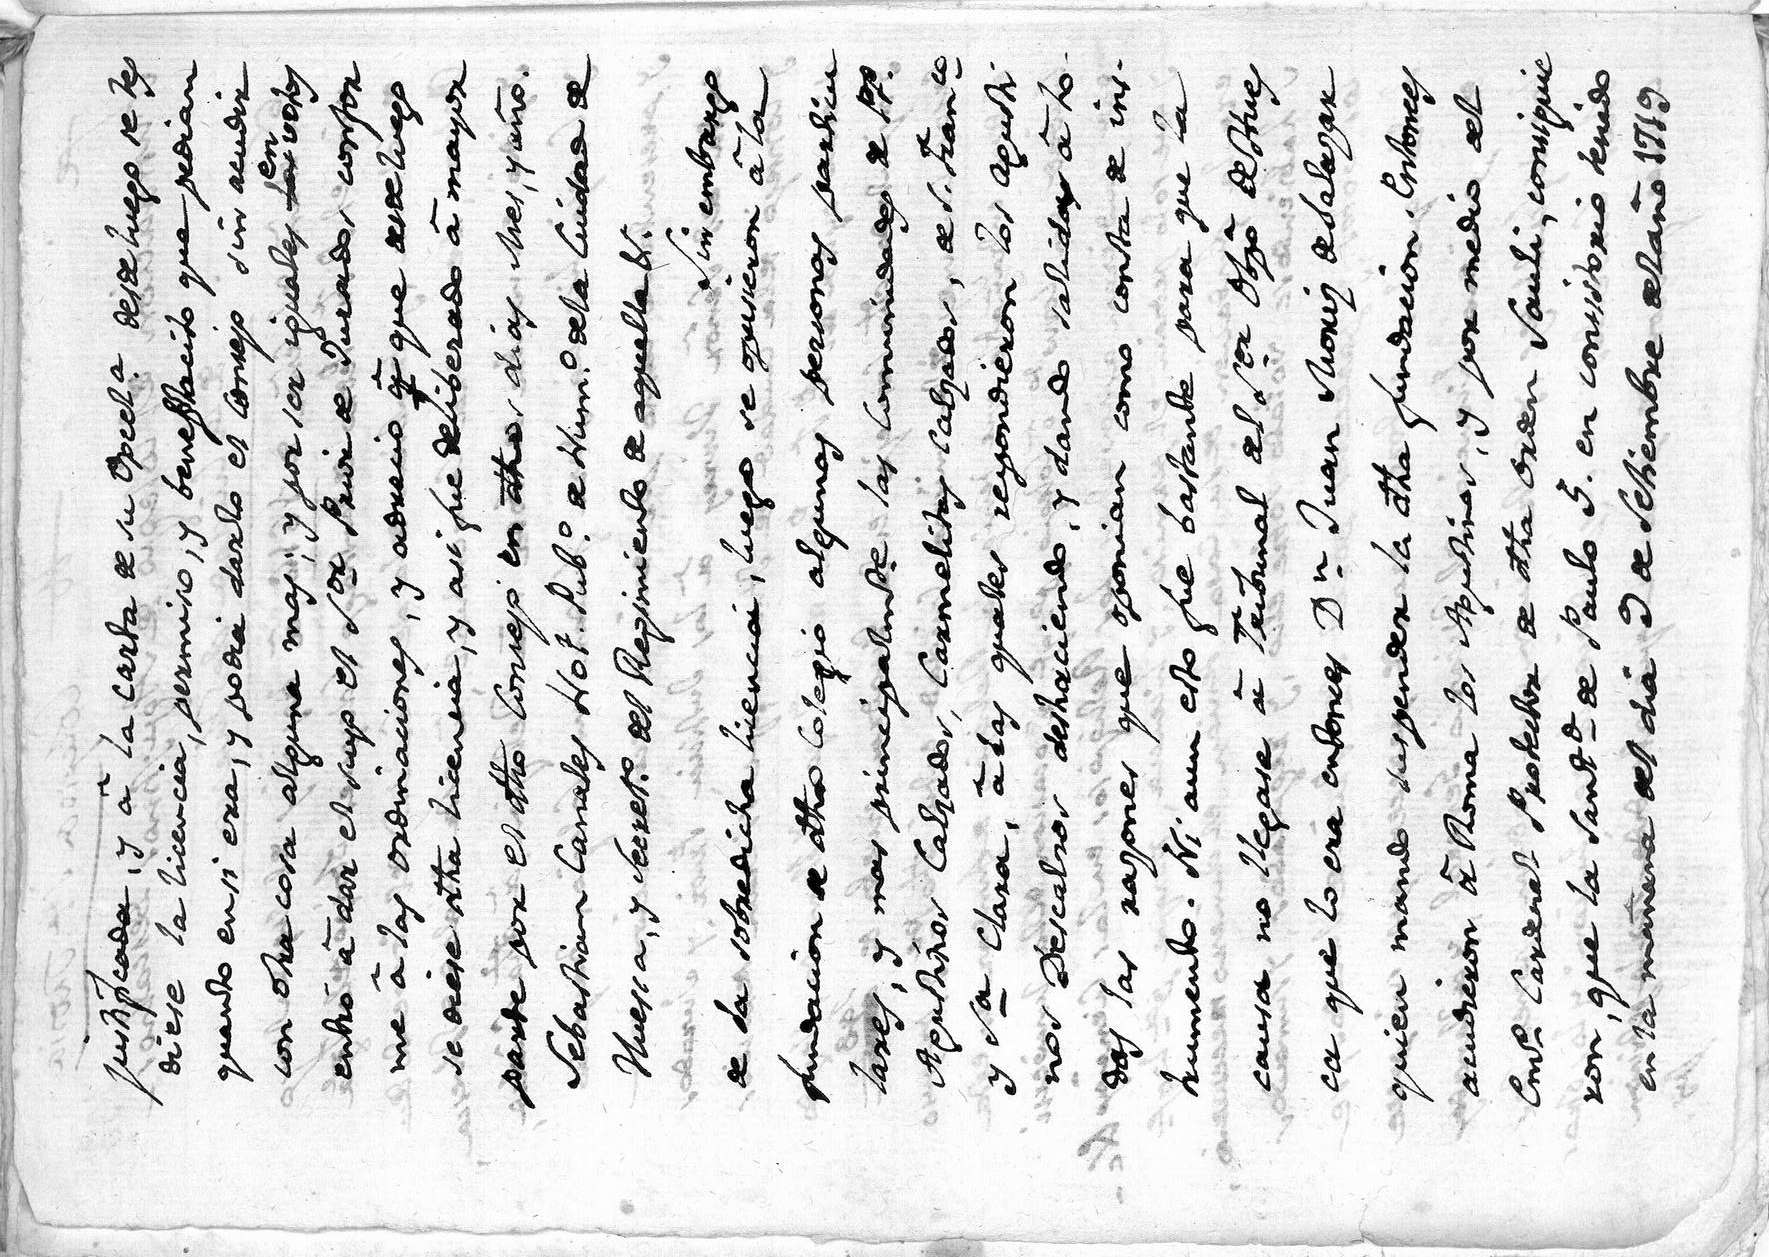 justificada, y â la carta de su Opecla. desde luego se les
diese la licencia, permiso, y beneplacito que pedian
quando en si era, y podia darlo el consejo sin acudir
con otra cosa alguna mas; y por ser iguales los en votos
entró â dar el suyo el Sor. Prior de Jurados, confor
me â las ordinaciones, y adrecio q̃ que desde luego
se diese dtha licencia, y asi fue deliberado â mayor
parte por el dtho Consejo en dthos dias, mes, y año.
Sebastian Canales Not. Pub.º de Num.º de la Ciudad de
Huesca, y Secret.º del Regimiento de aquella &.
Sin embargo
de la sobredicha licencia, luego se opusieron â la
fundacion de dtho Colegio algunas personas particu
lares, y mas principalmte. las comunidades de PP.
Agustinos Calzados, Carmelitas calzados, de S. Franco.
y Sta. Clara, â las quales respondieron los Agusti
nos Descalzos deshaciendo, y dando salidas â to-
das las razones que oponian como consta de ins-
trumento. Ni aun esto fue bastante para que la
causa no llegase â Tribunal del Sor. Obpô de Hues
ca que lo era entonces Dn. Juan Moriz de Salazar
quien mandó suspender la dtha fundacion. Entonces
acudieron â Roma los Agustinos, y por medio del
Eme. Cardenal Protector de dtha orden Sauli, consiguie
ron, que la Santd. de Paulo 5. en consistorio tenido
en la mañana del dia 9 de Setiembre del año 1719